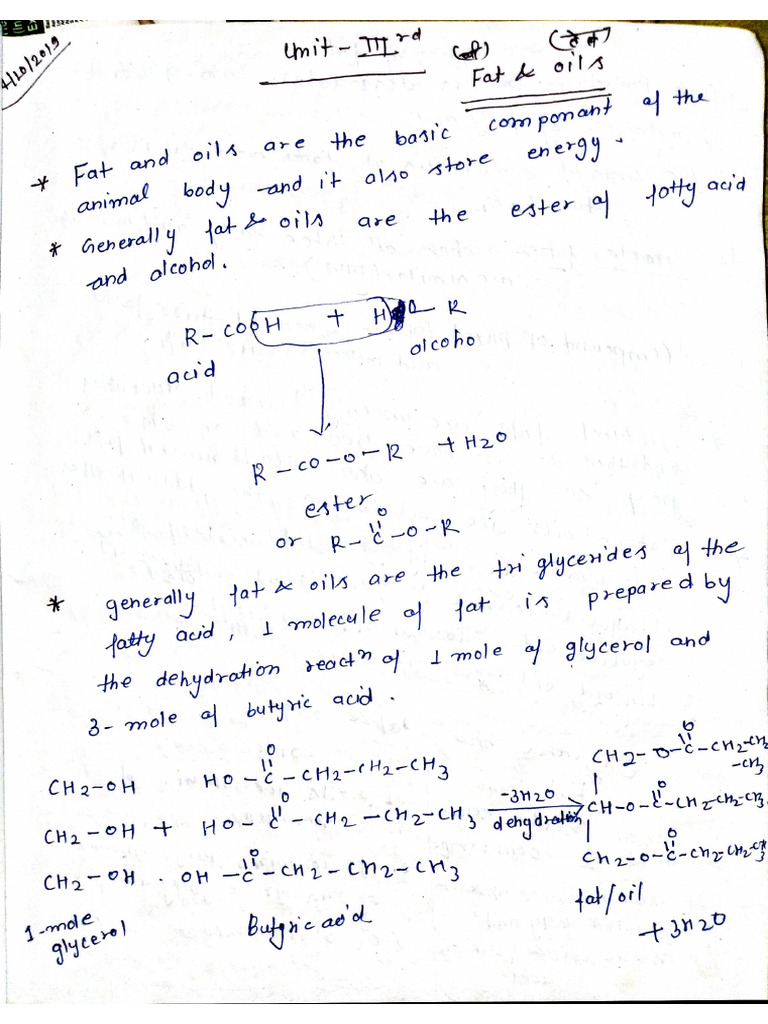 4/10/2019
Unit - III rd
(तेल)
Fat & oils
* Fat and oils are the basic componant of the
animal body and it also store energy.
* Generally fat & oils are the ester of fatty acid
and alcohol.
R-COOH + HO-R
acid alcoho
R-CO-O-R + H2O
ester
O
or R-C-O-R
* generally fat & oils are the tri glycerides of the
fatty acid, 1 molecule of fat is prepared by
the dehydration reactn of 1 mole of glycerol and
3- mole of butyric acid.
CH2-OH HO-C-CH2-CH2-CH3 CH2-O-C-CH2-CH2-CH3
O O O
CH2-OH + HO-C-CH2-CH2-CH3 -3H2O dehydration CH-O-C-CH2-CH2-CH3
O O O
CH2-OH . OH-C-CH2-CH2-CH3 CH2-O-C-CH2-CH2-CH3
1-mole glycerol Butyric acid fat/oil
+3H2O